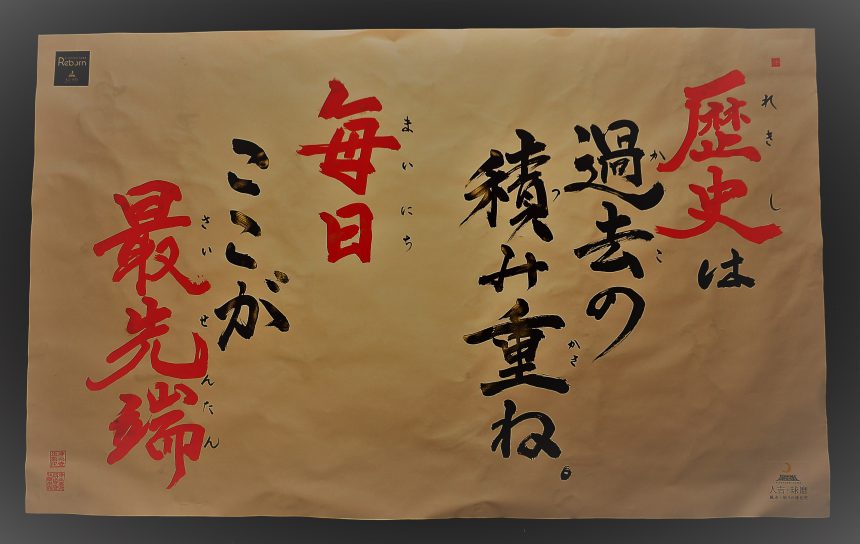 歴史は
過去の
積み重ね。
毎日
ここが
最先端
れきし
かこ
つ
かさ
まいにち
さい
せんたん
Reborn
人吉球磨